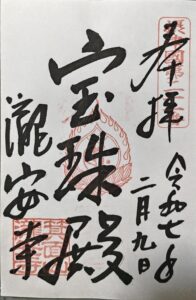 奉拝
令和七年
二月九日
宝珠殿
瀧安寺